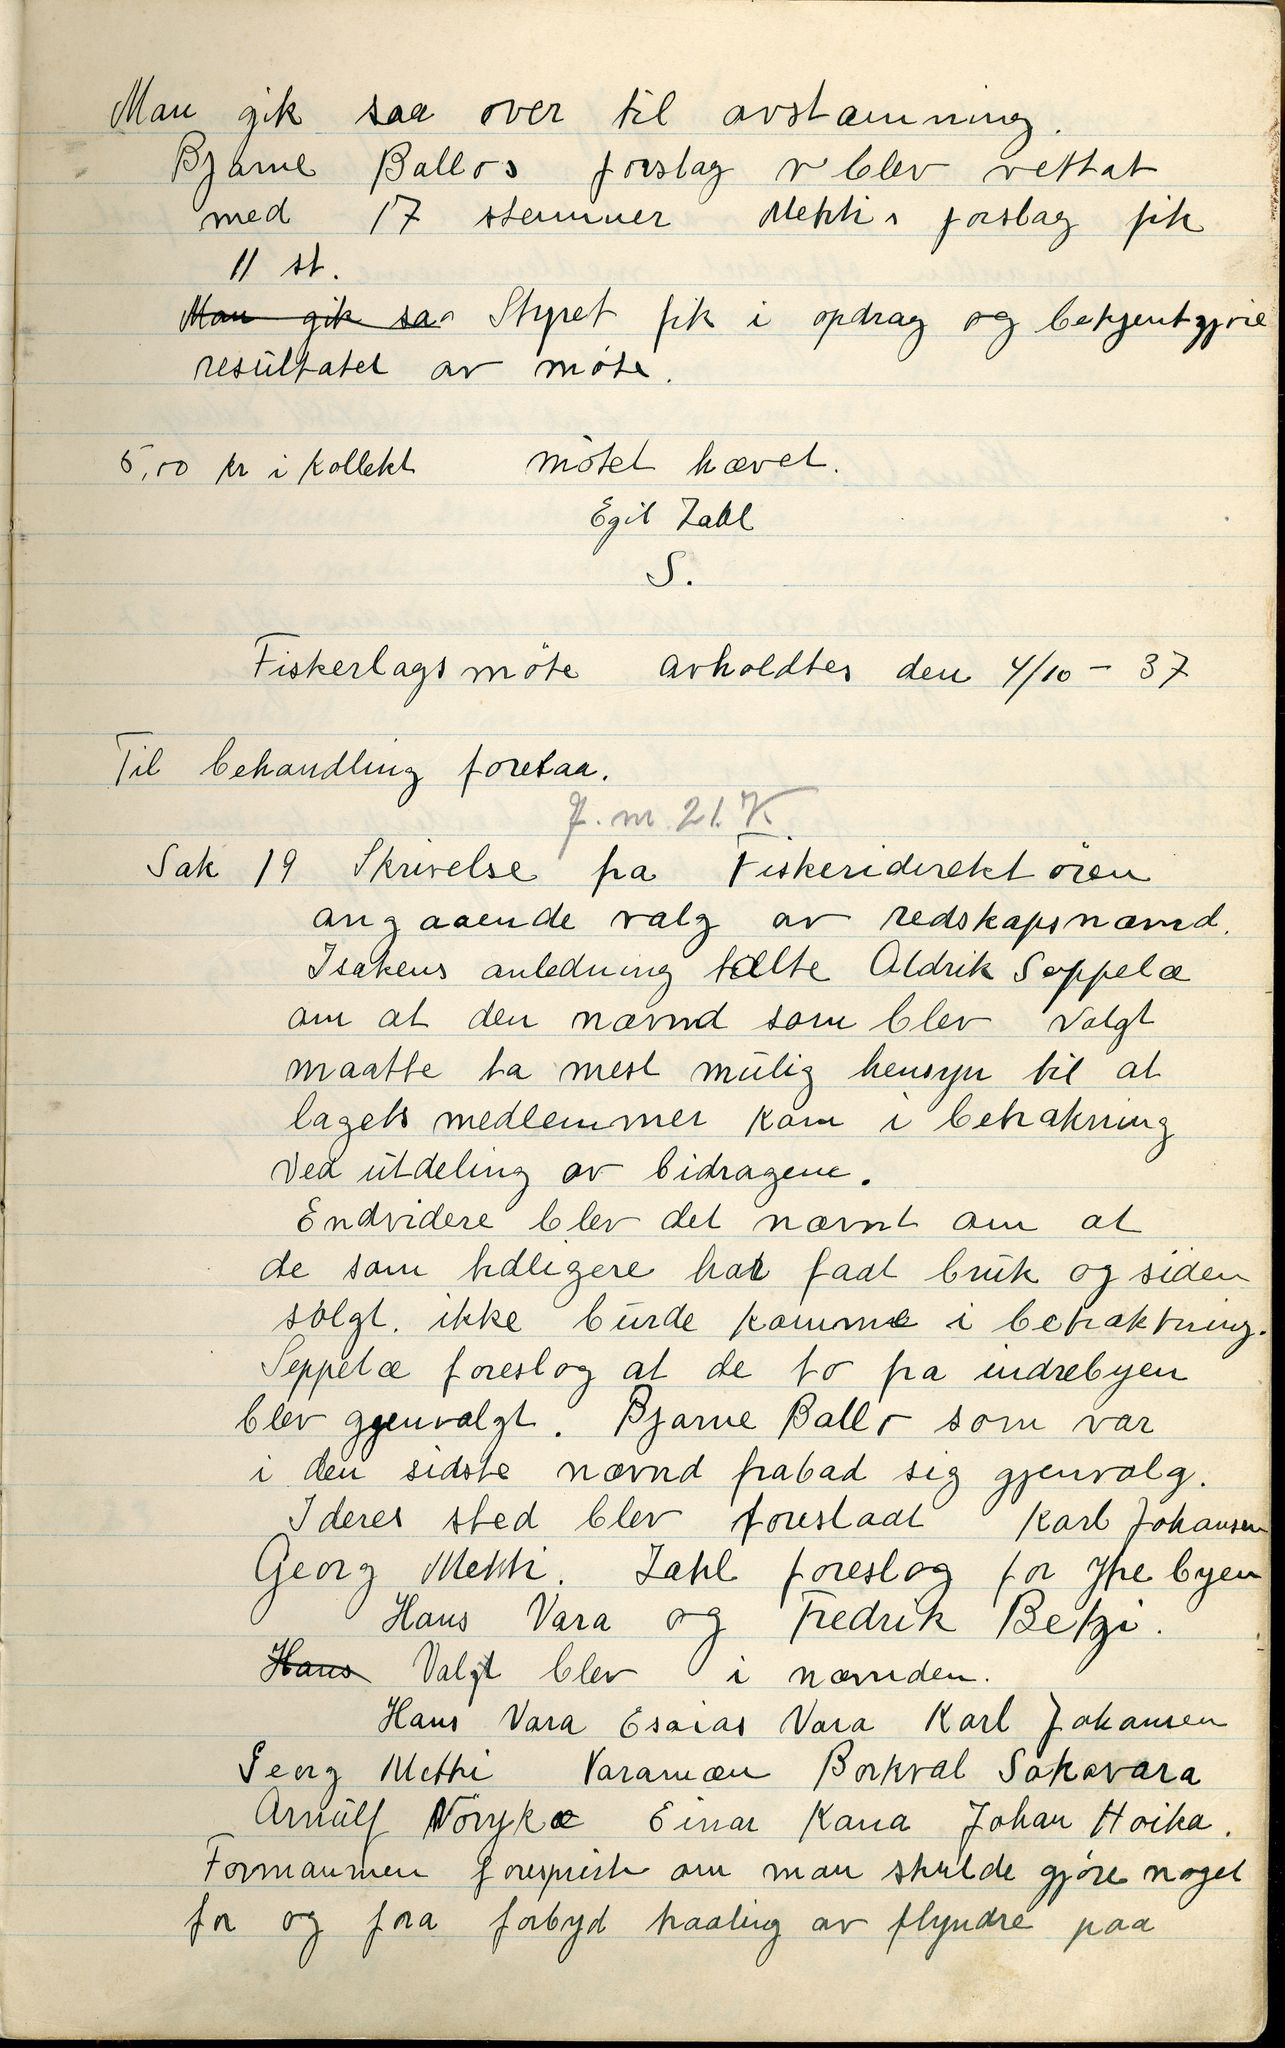 Man gik saa over til avstæmning.
Bjarne Ballos forslag v blev vettat
med 17 stemmer Methis forslag fik
11 st.
Man gik saa Styret fik i opdrag og bekjentgjøre
resultatet av møte.
5,00 kr i kollekt møtet hævet.
Egil Zahl
S.
Fiskerlagsmøte avholdtes den 4/10 - 37
Til behandling foretaa.
J. m. 21. K
Sak 19 Skrivelse fra Fiskeridirektøren
angaaende valg av redskapsnævnd.
Isakens anledning talte Aldrik Seppelæ
om at den nævnd som blev valgt
maatte ta mest mulig hensyn til at
lagets medlemmer kom i betrakning
ved utdeling av bidragene.
Endvidere blev det nævnt om at
de som tidligere har faat bruk og siden
solgt. ikke burde komme i betraktning.
Seppelæ foreslog at de to fra indrebyen
blev gjenvalgt. Bjarne Ballo som var
i den sidste nævnd frabad sig gjenvalg.
I deres sted blev foreslaat Karl Johansen
Georg Methi. Zahl foreslog for ytre byen
Hans Vara og Fredrik Betzi.
Hans Valgt blev i nævnden.
Hans Vara Esaias Vara Karl Johansen
Georg Methi Varamæn Borkval Sakovara
Arnulf Nöryke Einar Kana Johan Hoika.
Formannen forespurte om man skulde gjøre noget
for og faa forbyd haaling av flyndre paa